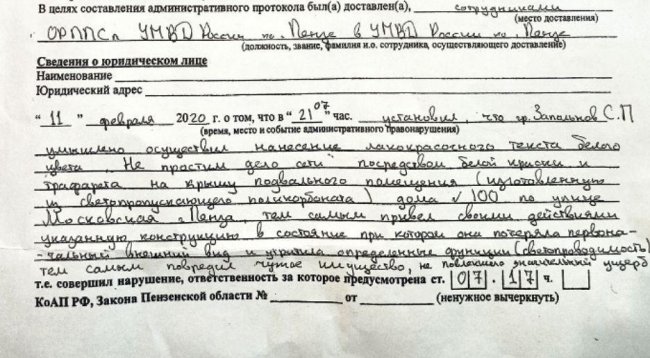 В целях составления административного протокола был(а) доставлен(а), сотрудниками
(место доставления)
ОРППСп УМВД России по г. Пенза в УМВД России по г. Пенза
(должность, звание, фамилия и.о. сотрудника, осуществляющего доставление)
Сведения о юридическом лице
Наименование
Юридический адрес
" 11 " февраля 2020 г. о том, что в " 21 07 " час. установил, что гр. Запольнов С.П
(время, место и событие административного правонарушения)
умышлено осуществил нанесение лакокрасочного текста белого
цвета "Не простим дело сети" посредством белой краски и
трафарета на крышу подвального помещения (изготовленную
из светопропускающего поликарбоната) дома № 100 по улице
Московская г. Пенза, тем самым привел своими действиями
указанную конструкцию в состояние при котором она потеряла первона-
-чальный внешний вид и утратила определенные функции (светопроводимость)
тем самым повредил чужое имущество, не повлекшего значительный ущерб
т.е. совершил нарушение, ответственность за которое предусмотрена ст. 07 . 17 ч.
КоАП РФ, Закона Пензенской области № от (ненужное вычеркнуть)